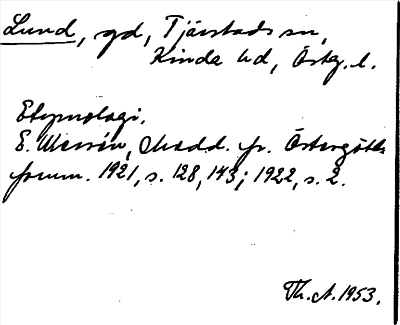 Lund, gd, Tjärstads sn,
Kinda hd, Östg. l.
Etymologi.
E. Wessén, Medd. fr. Östergötl.
fornm. 1921, s. 128, 143; 1922, s. 2.
Th. A. 1953.